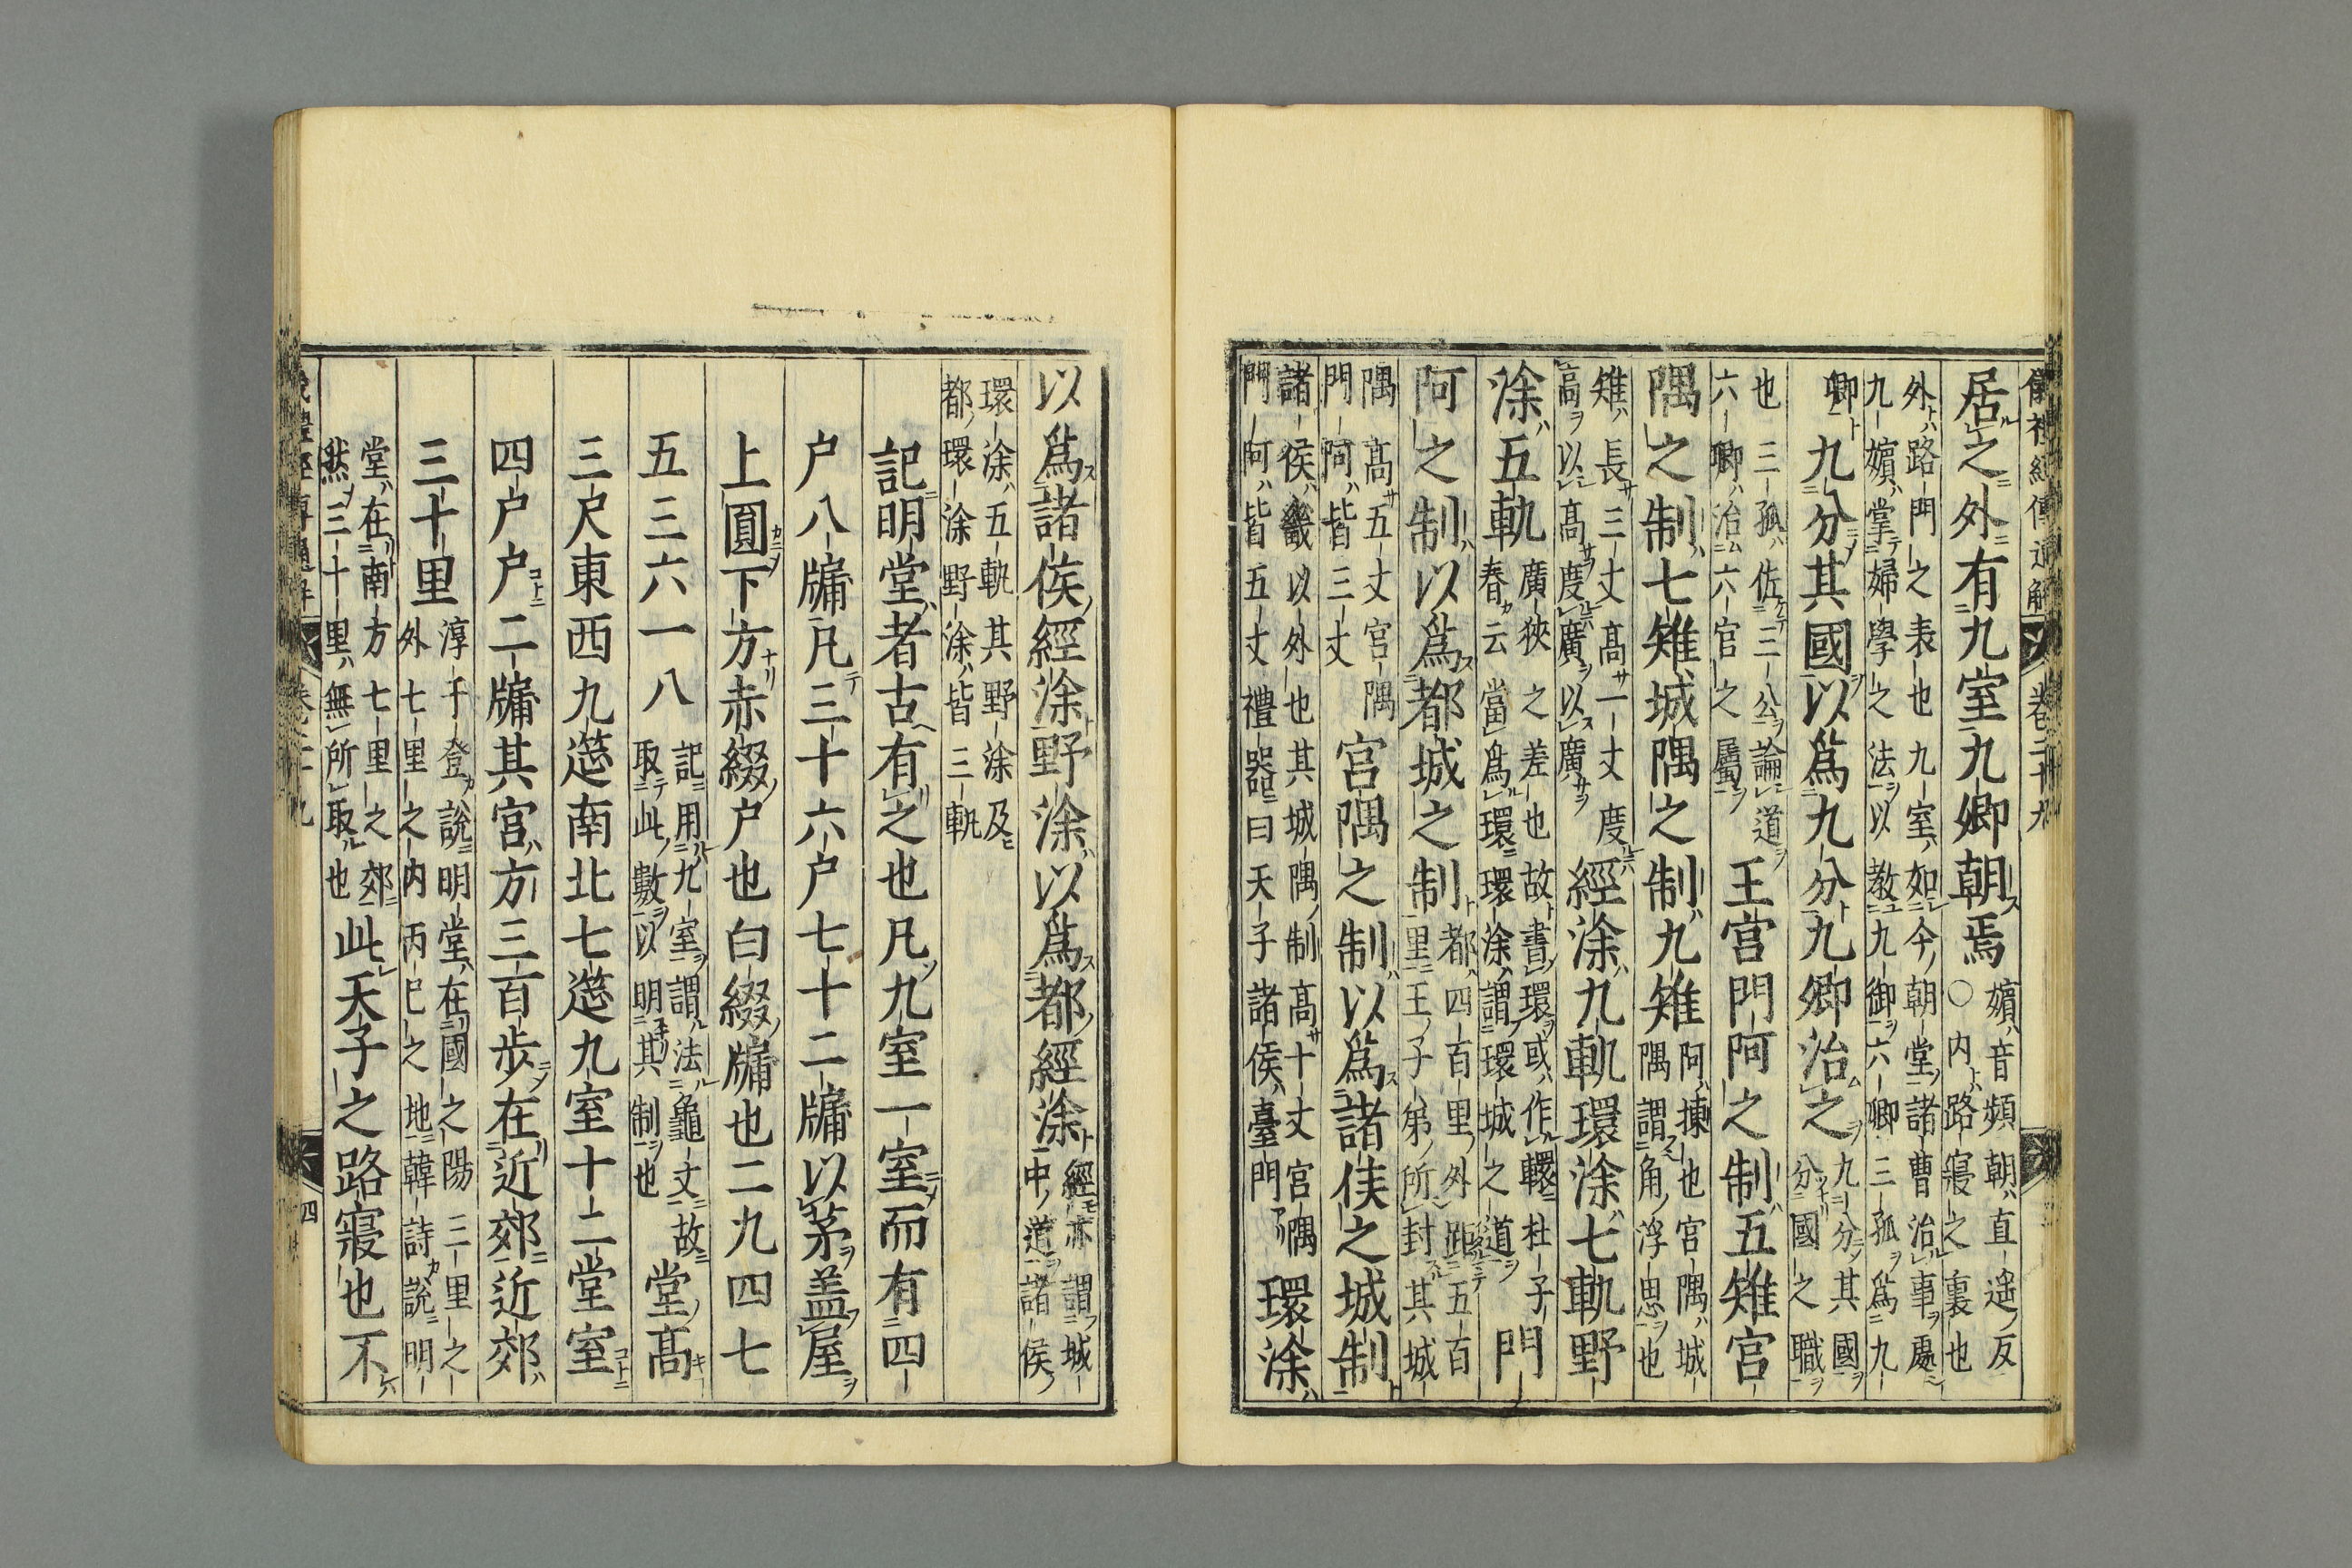 儀禮經傳通解 卷二十九
居之外有九室九卿朝焉 嬪音頻朝直遥反○内路寢之裏也
外路門之表也九室如今朝堂諸曹治事處九嬪掌婦學之法以教九御六卿三孤爲九
卿 九分其國以爲九分九卿治之 九分其國分國之職
也三孤佐三公論道六卿治六官之屬 王宮門阿之制五雉宮
隅之制七雉城隅之制九雉 阿揀也宮隅城隅謂角浮思也
雉長三丈高一丈度高以高度廣以廣 經涂九軌環涂七軌野
涂五軌 廣狹之差也故書環或作轘杜子春云當爲環環涂謂環城之道 門
阿之制以爲都城之制 都四百里外距五百里王子弟所封其城
隅高五丈宮隅門阿皆三丈 宮隅之制以爲諸侯之城制
諸侯畿以外也其城隅制高十丈宮隅門阿皆五丈禮器曰天子諸侯臺門 環涂
以爲諸侯經涂野涂以爲都經涂 經亦謂城中道諸侯
環涂五軌其野涂及都環涂野涂皆三軌
記明堂者古有之也凡九室一室而有四
户八牖凡三十六户七十二牖以茅盖屋
上圓下方赤綴户也白綴牖也二九四七
五三六一八 記用九室謂法龜文故取此數以明其制也 堂高
三尺東西九筵南北七筵九室十二堂室
四户户二牖其宮方三百步在近郊近郊
三十里 淳于登説明堂在國之陽三里之外七里之内丙巳之地韓詩説明
堂在南方七里之郊然三十里無所取也 此天子之路寢也不
四